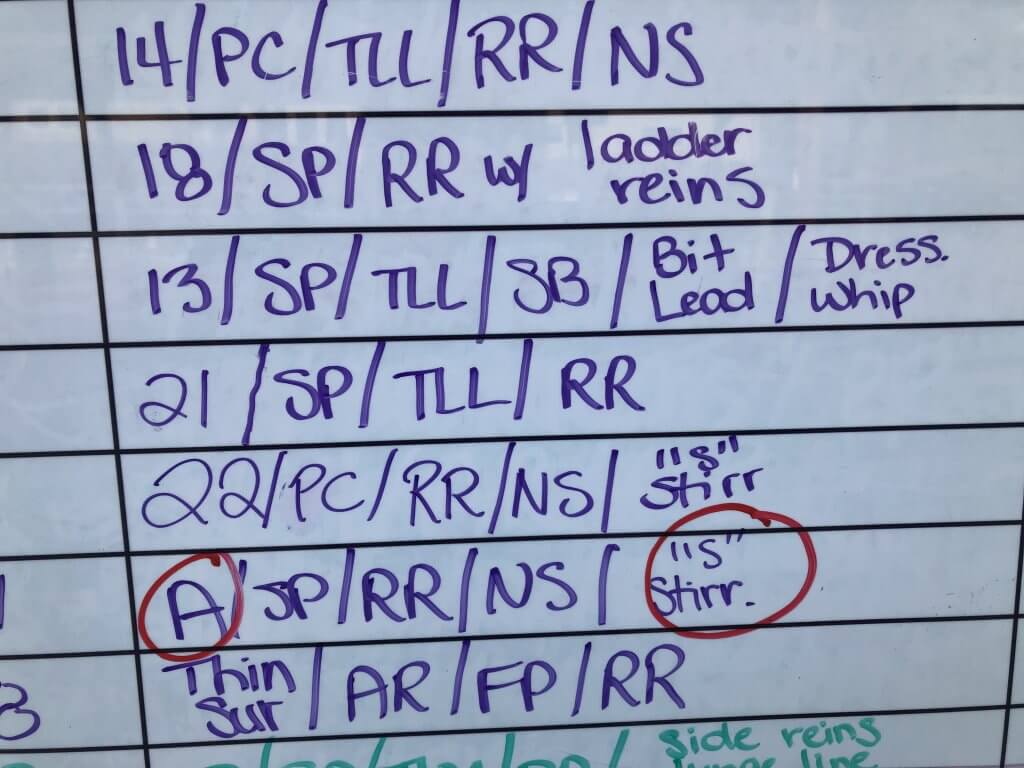 14/PC/TLL/RR/NS
18/SP/RR w/ ladder reins
13/SP/TLL/SB/Bit Lead/Dress. whip
21/SP/TLL/RR
22/PC/RR/NS/"S" Stirr
A/SP/RR/NS/"S" Stirr.
Thin Sur/AR/FP/RR
side reins